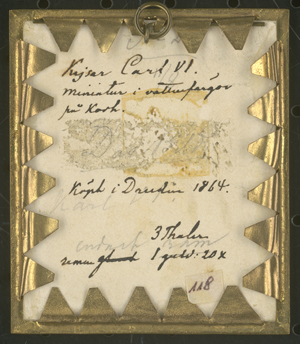 Kejsar Carl VI.
miniatur i vattenfärger
på Korh.
Köpt i Dresden 1864.
3 Thaler
1 guld. 20 x
118